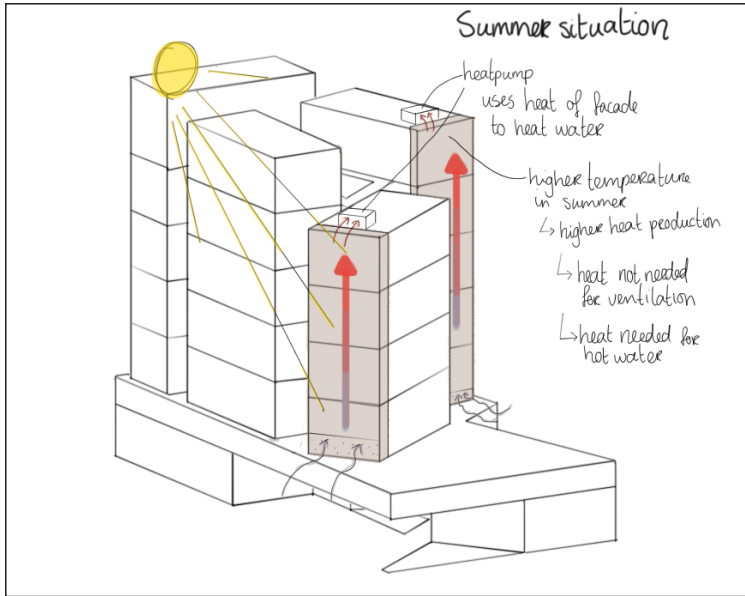 Summer situation
heatpump
uses heat of facade
to heat water
higher temperature
in summer
↳ higher heat production
↳ heat not needed
for ventilation
↳ heat needed for
hot water